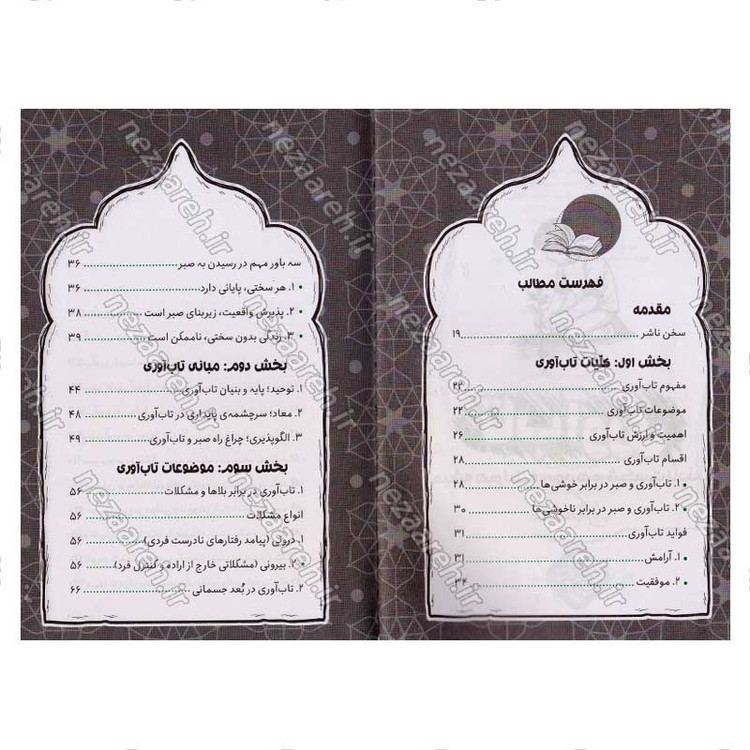 فهرست مطالب
مقدمه
سخن ناشر ........ ۱۹
بخش اول: کلّیات تاب‌آوری
مفهوم تاب‌آوری ........ ۲۲
موضوعات تاب‌آوری ........ ۲۲
اهمیت و ارزش تاب‌آوری ........ ۲۶
اقسام تاب‌آوری ........ ۲۸
• ۱. تاب‌آوری و صبر در برابر خوشی‌ها ........ ۲۸
• ۲. تاب‌آوری و صبر در برابر ناخوشی‌ها ........ ۳۰
فواید تاب‌آوری ........ ۳۱
• ۱. آرامش ........ ۳۱
• ۲. موفقیت ........ ۳۴
سه باور مهم در رسیدن به صبر ........ ۳۶
• ۱. هر سختی، پایانی دارد ........ ۳۶
• ۲. پذیرش واقعیت، زیربنای صبر است ........ ۳۸
• ۳. زندگی بدون سختی، ناممکن است ........ ۳۹
بخش دوم: مبانی تاب‌آوری
۱. توحید؛ پایه و بنیان تاب‌آوری ........ ۴۴
۲. معاد؛ سرچشمه‌ی پایداری در تاب‌آوری ........ ۴۸
۳. الگوپذیری؛ چراغ راه صبر و تاب‌آوری ........ ۴۹
بخش سوم: موضوعات تاب‌آوری
۱. تاب‌آوری در برابر بلاها و مشکلات ........ ۵۶
انواع مشکلات ........ ۵۶
• ۱. درونی (پیامد رفتارهای نادرست فردی) ........ ۵۶
• ۲. بیرونی (مشکلاتی خارج از اراده و کنترل فرد) ........ ۵۶
۲. تاب‌آوری در بُعد جسمانی ........ ۶۶
nezaareh.ir